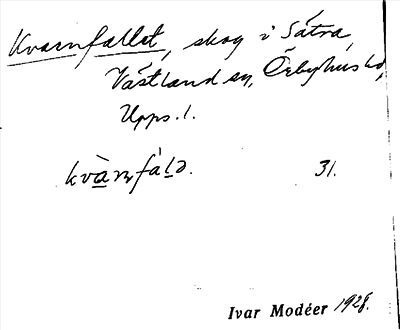 Kvarnfallet, skog i Sätra,
Västland sn, Örbyhus hd,
Upps. l.
kvà̱ɳfáḻə. 31.
Ivar Modéer 1928.